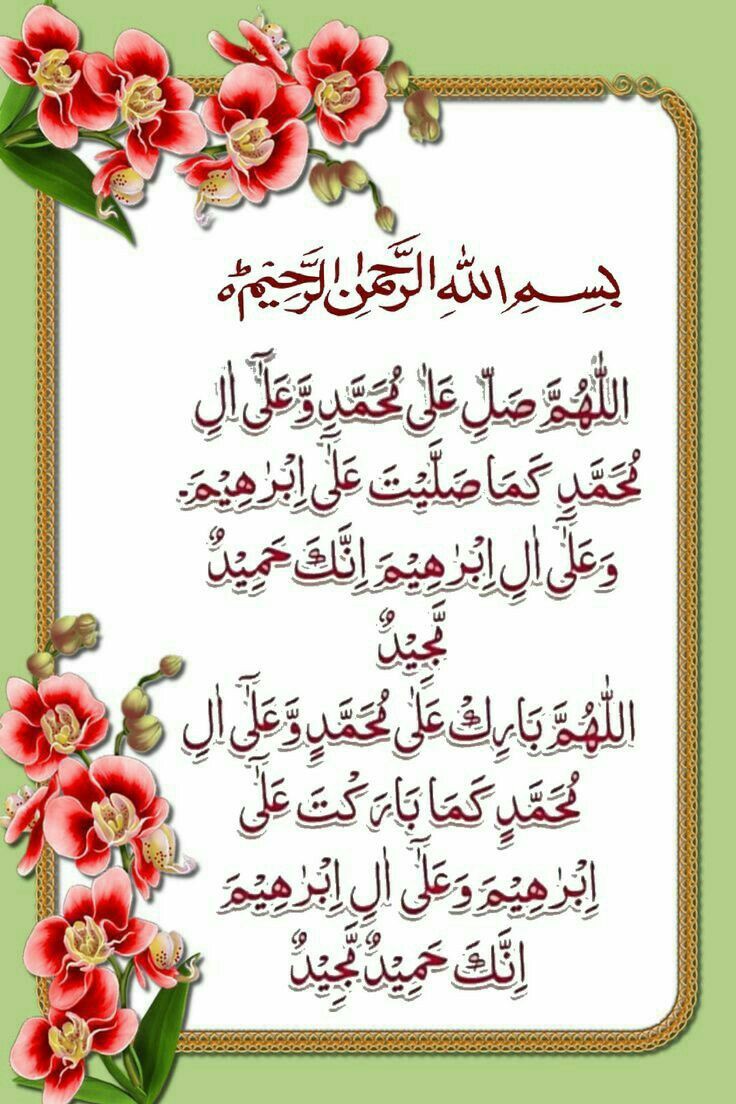 بِسْمِ اللهِ الرَّحْمٰنِ الرَّحِيْمِ
اللّٰهُمَّ صَلِّ عَلٰى مُحَمَّدٍ وَّعَلٰٓى اٰلِ
مُحَمَّدٍ كَمَا صَلَّيْتَ عَلٰٓى اِبْرٰهِيْمَ.
وَعَلٰٓى اٰلِ اِبْرٰهِيْمَ اِنَّكَ حَمِيْدٌ
مَّجِيْدٌ
اللّٰهُمَّ بَارِكْ عَلٰى مُحَمَّدٍ وَّعَلٰٓى اٰلِ
مُحَمَّدٍ كَمَا بَارَكْتَ عَلٰٓى
اِبْرٰهِيْمَ وَعَلٰٓى اٰلِ اِبْرٰهِيْمَ
اِنَّكَ حَمِيْدٌ مَّجِيْدٌ